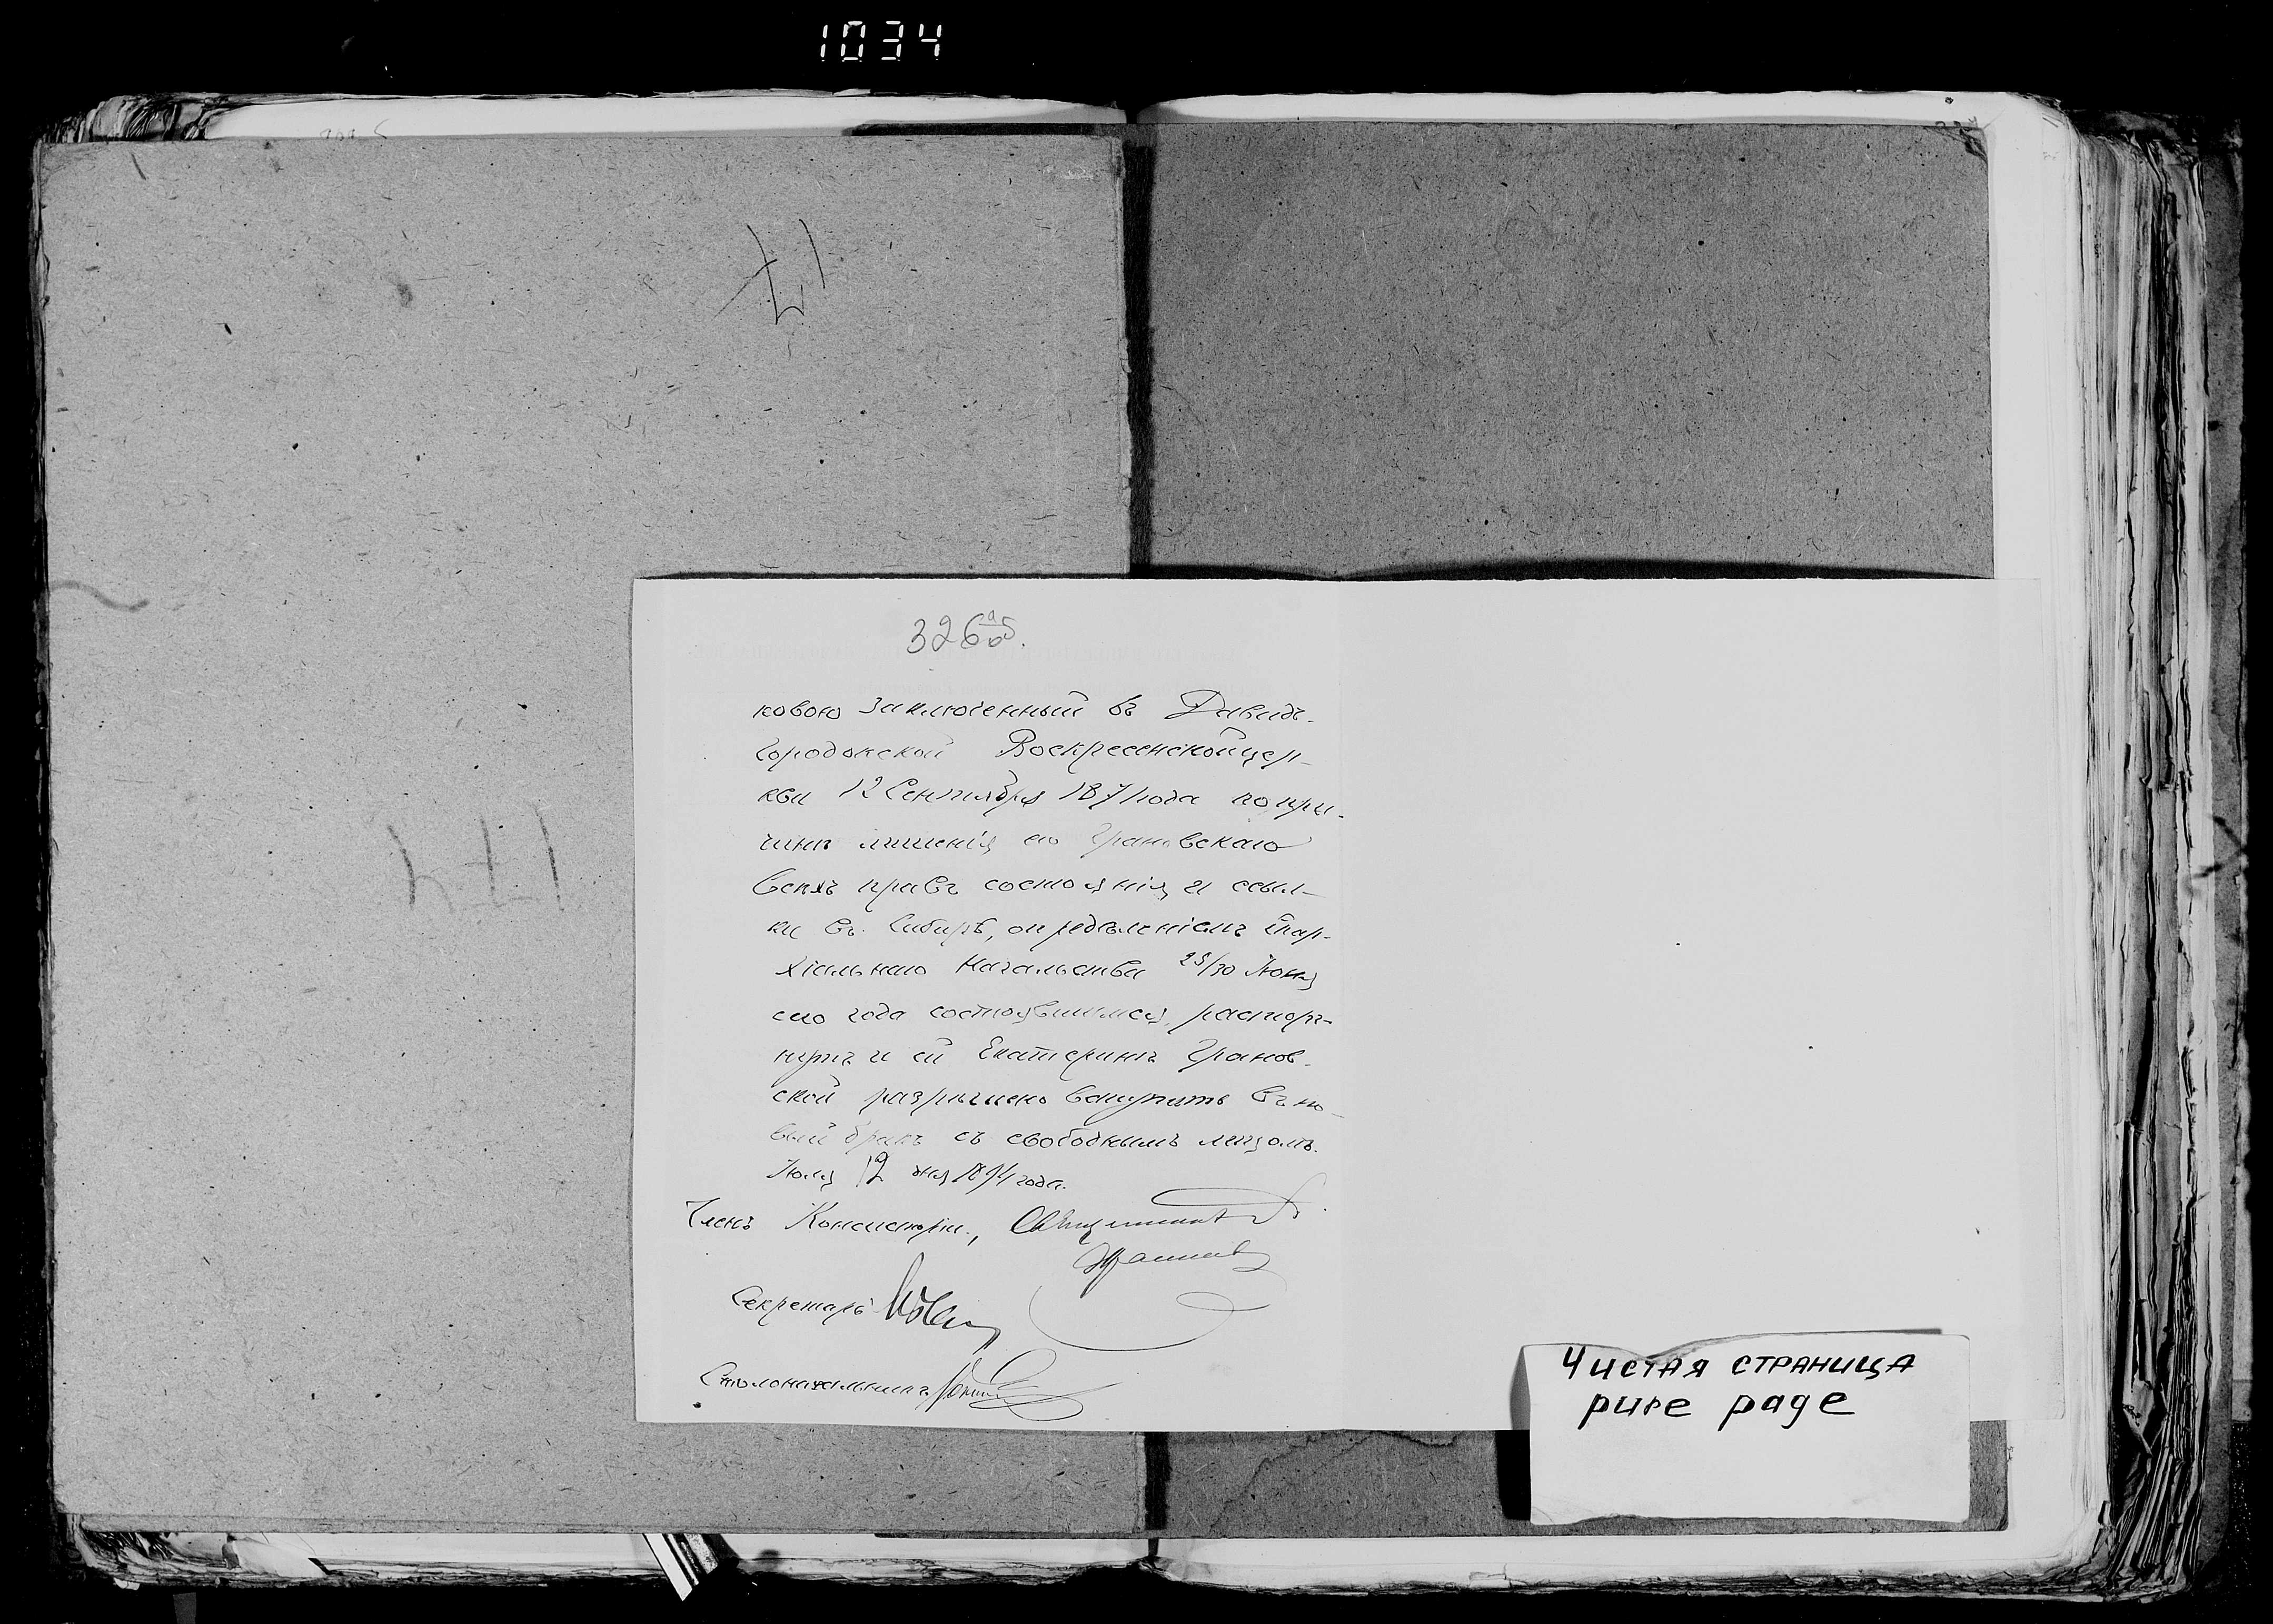 1034
174
326 а об.
ковою заключенный въ Давидъ-
Городокской Воскресенской цер-
кви 12 Сентября 1871 года по при-
чинѣ лишенія его Грановскаго
всехъ правъ состоянія и ссыл-
ки въ Сибирь, опредѣленіемъ Епар-
хіальнаго Начальства 25/30 Іюня
сего года состоявшимся, расторг-
нутъ и ей Екатеринѣ Гранов-
ской разрѣшено вступить въ но-
вый бракъ съ свободнымъ лицомъ.
Іюля 12 дня года.
Членъ Консисторіи, Священникъ
Секретарь
Столоначальникъ
Чистая страница
pure page